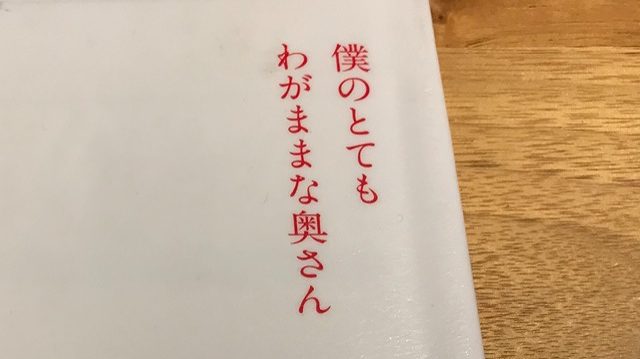 僕のとても
わがままな奥さん